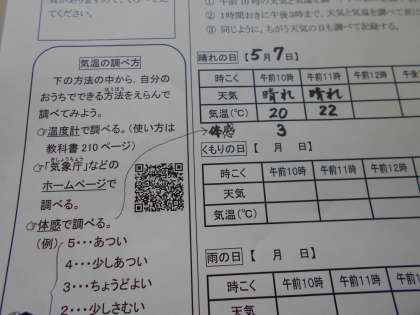 てください。
① 午前10時の天気と気温を調べ
② 1時間おきに午後3時まで、天気と気温を調べ
③ 同じように、ちがう天気の日も調べて記録する。
気温の調べ方
下の方法の中から、自分の
おうちでできる方法をえらんで
調べてみよう。
☞温度計で調べる。(使い方は
教科書210ページ)
☞「気象庁」などの
ホームページで調
べる。
☞体感で調べる。
(例) 5…あつい
4…少しあつい
3…ちょうどよい
2…少しさむい
晴れの日【5月7日】
時こく 午前10時 午前11時 午前12時
天気 晴れ 晴れ
気温(℃) 20 22
体感 3
くもりの日【 月 日】
時こく 午前10時 午前11時 午前12時
天気
気温(℃)
雨の日【 月 日】
時こく 午前10時 午前11時 午前12時
天気